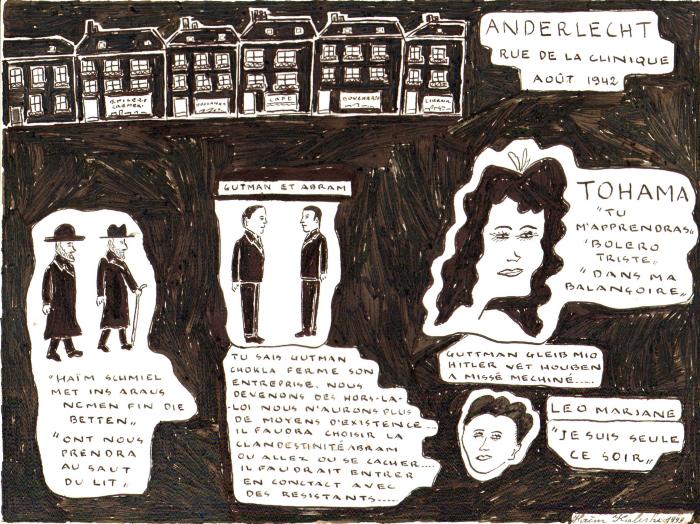 ANDERLECHT
RUE DE LA CLINIQUE
AOÛT 1942
CAFE
GUTMAN ET ABRAM
TOHAMA
"TU
M'APPRENDRAS"
"BOLERO
TRISTE"
"DANS MA
BALANÇOIRE"
"HAÏM SCHMIEL
MET INS ARAUS
NEMEN FIN DIE
BETTEN"
"ONT NOUS
PRENDRA
AU SAUT
DU LIT"
TU SAIS GUTMAN
CHOKLA FERME SON
ENTREPRISE. NOUS
DEVENONS DES HORS-LA-
-LOI NOUS N'AURONS PLUS
DE MOYENS D'EXISTENCE...
IL FAUDRA CHOISIR LA
CLANDESTINITÉ ABRAM
OU ALLEZ OU SE CACHER....
IL FAUDRAIT ENTRER
EN CONCTACT AVEC
DES RESISTANTS.....
GUTTMAN GLEIB MIO
HITLER VET HOUBEN
A MISSÉ MECHINÉ.....
LEO MARJANE
"JE SUIS SEULE
CE SOIR"